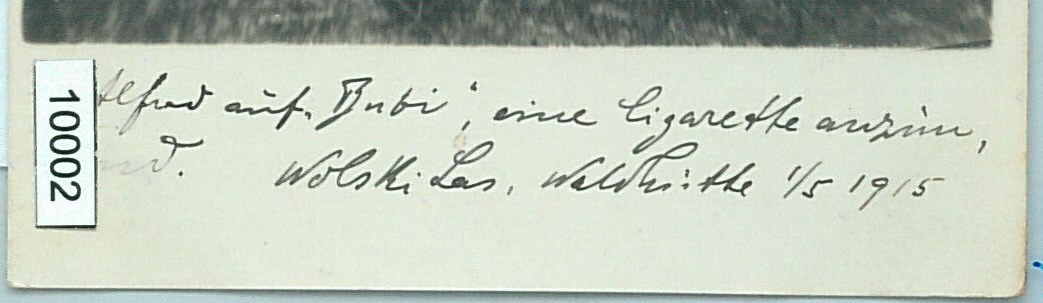 Alfred auf „Bubi“, eine Cigarette anzün,
dend. Wolski Las, Waldhütte 1/5 1915
10002